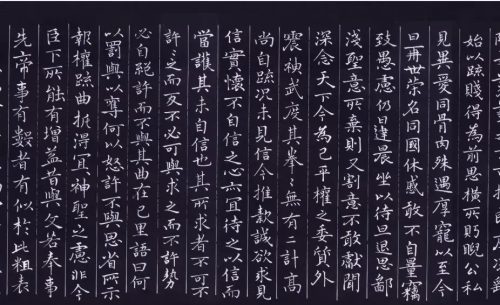 始以疏賤得為前恩橫所盼睨公私
見異愛同骨肉殊遇厚寵以至今
日再世榮名同國休慼敢不自量竊
致愚慮仍日達晨坐以待旦退思鄙
淺聖意所棄則又割意不敢獻聞
深念天下今為已平權之委質外
震神武度其拳〻無有二計高
尚自疏況未見信今推款誠欲求見
信實懷不自信之心亦宜待之以信而
當護其未自信也其所求者不可不
許之而反不必可與求之而不許勢
必自絕許而不與其曲在己里語曰何
以罰與以奪何以怒許不與思省所示
報權疏曲折得宜神聖之慮非今
臣下所能有增益昔與文若奉事
先帝事有數者有似於此粗表